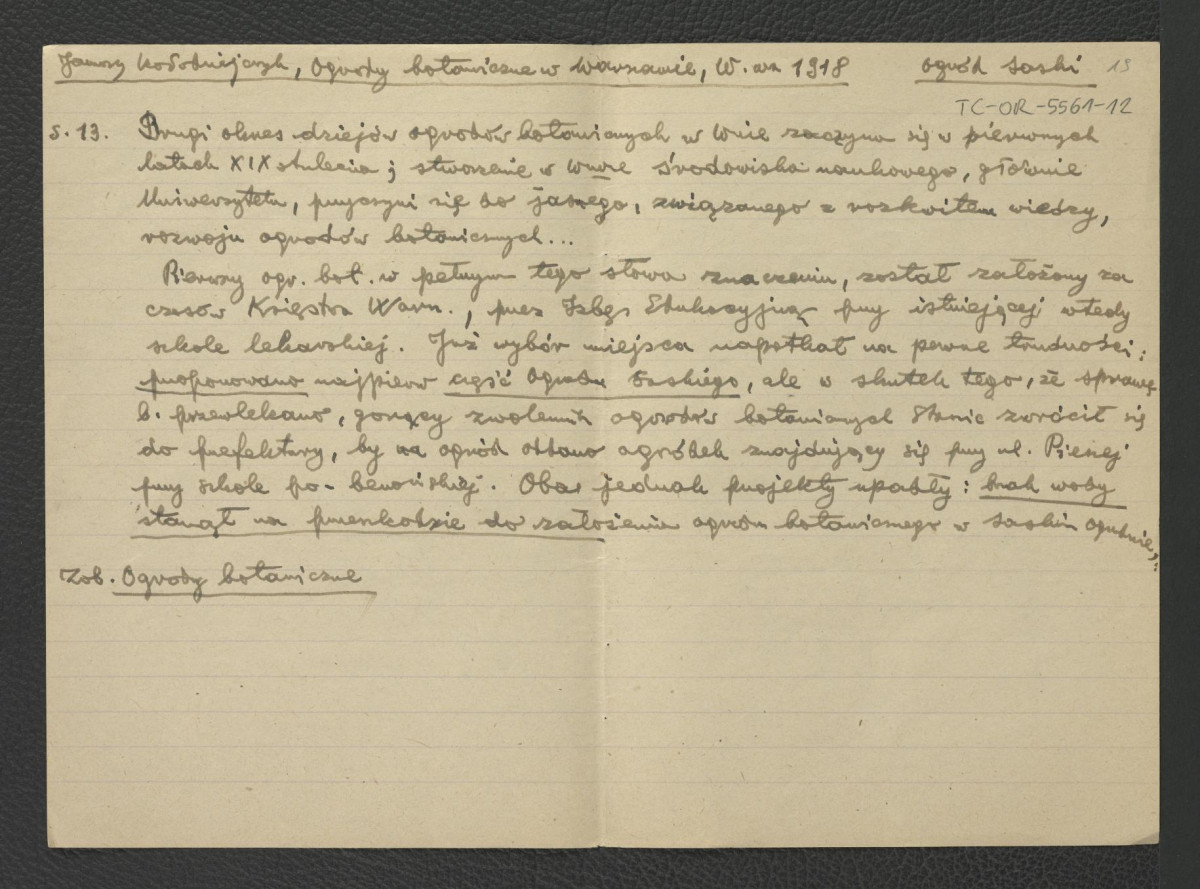 Janusz Kołodziejczyk, Ogrody botaniczne w Warszawie, W. wa 1918 ogród Saski 19
TC-OR-5561-12
s. 13. Drugi okres dziejów ogrodów botanicznych w Wwie zaczyna się w pierwszych
latach XIX stulecia; stworzenie w Wwie środowiska naukowego, głównie
Uniwersytetu, przyczyni się do jasnego, związanego z rozkwitem wiedzy,
rozwoju ogrodów botanicznych...
Pierwszy ogr. bot. w pełnym tego słowa znaczeniu, został założony za
czasów Księstwa Warsz., przez Izbę Edukacyjną przy istniejącej wtedy
szkole lekarskiej. Już wybór miejsca napotkał na pewne trudności:
proponowano najpierw część Ogrodu Saskiego, ale w skutek tego, że sprawę
b. przewlekano, gorący zwolennik ogrodów botanicznych Staszic zwrócił się
do prefektury, by na ogród oddano ogródek znajdujący się przy ul. Piesej
przy szkole po-benońskiej. Oba jednak projekty upadły: brak wody
stanął na przeszkodzie do założenia ogrodu botanicznego w Saskim Ogrodzie,..
Zob. Ogrody botaniczne